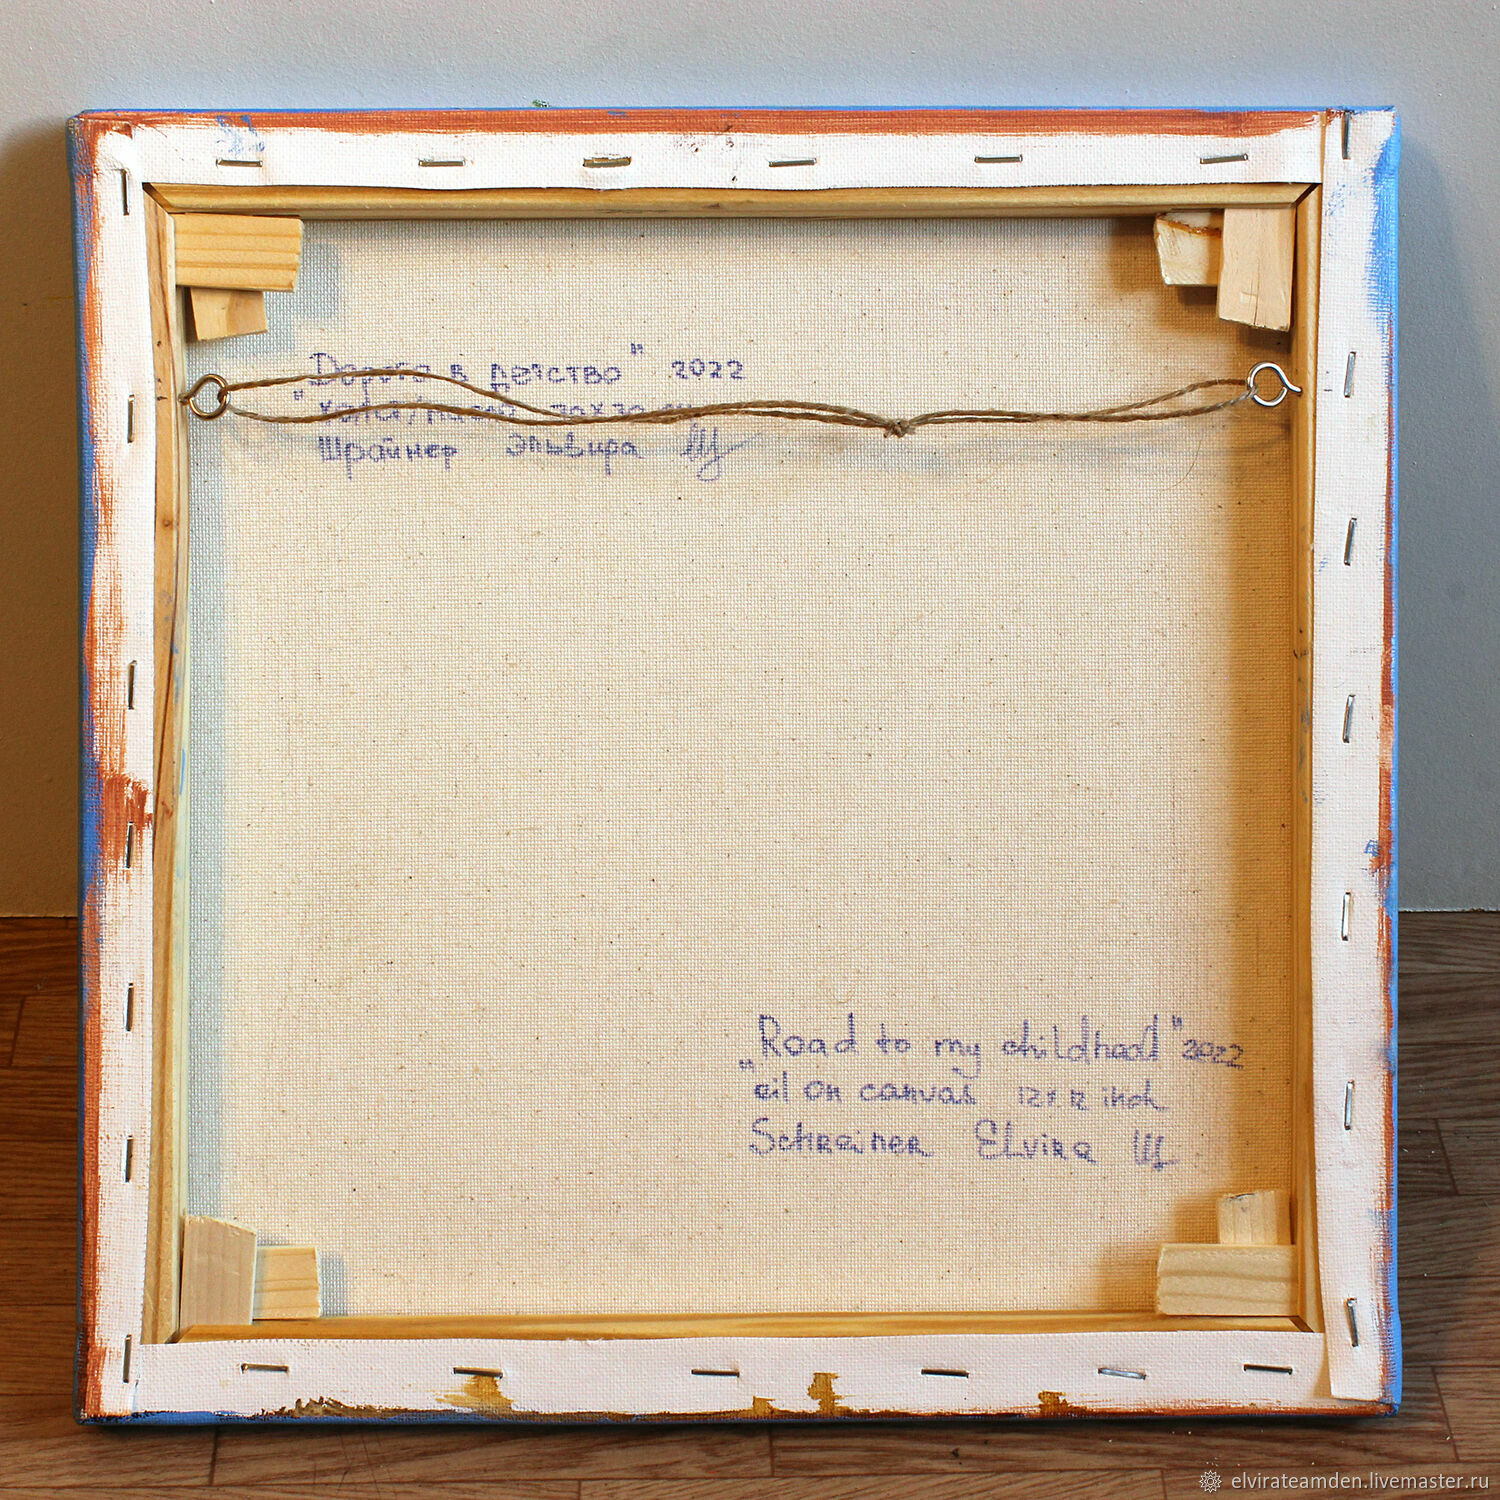 "Дорога в детство" 2022
холст/масло 30х30 см
Шрайнер Эльвира Ш
"Road to my childhood" 2022
oil on canvas 12x12 inch
Schreiner Elvira Ш
elvirateamden.livemaster.ru